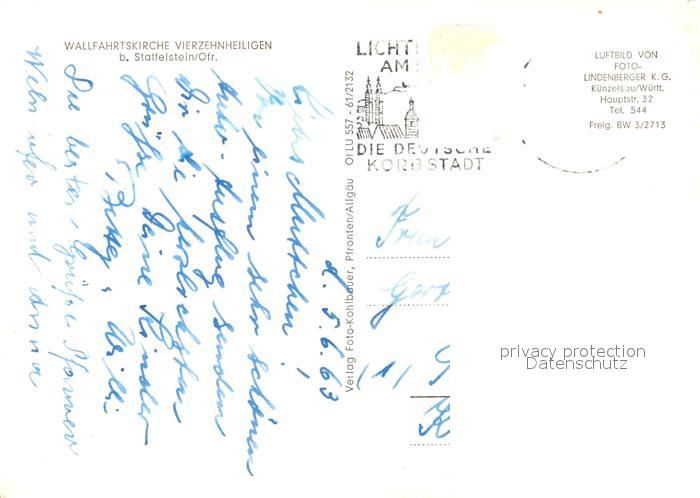 WALLFAHRTSKIRCHE VIERZEHNHEILIGEN
b. Staffelstein/Ofr.
L. 5.6.63
Liebes Muttchen!
Von einem sehr schönen
Auto-Ausflug senden
Dir die herzlichsten
Grüße Deine Kinder
Betty u. Willi
Die besten Grüße
und Anna
Verlag Foto-Kohlbauer, Pfronten/Allgäu OI LU 557 - 61/2132
LICHT
AM
DIE DEUTSCHE
KORBSTADT
LUFTBILD VON
FOTO-
LINDENBERGER K.G.
Künzelsau/Württ.
Hauptstr. 32
Tel. 544
Freig. BW 3/2713
Frau
Georg
(1)
privacy protection
Datenschutz